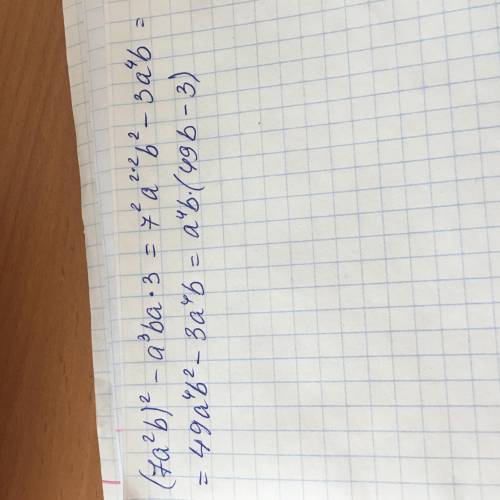 (7a²b)² - a³ba·3 = 7²a²·²b² - 3a⁴b =
= 49a⁴b² - 3a⁴b = a⁴b·(49b - 3)